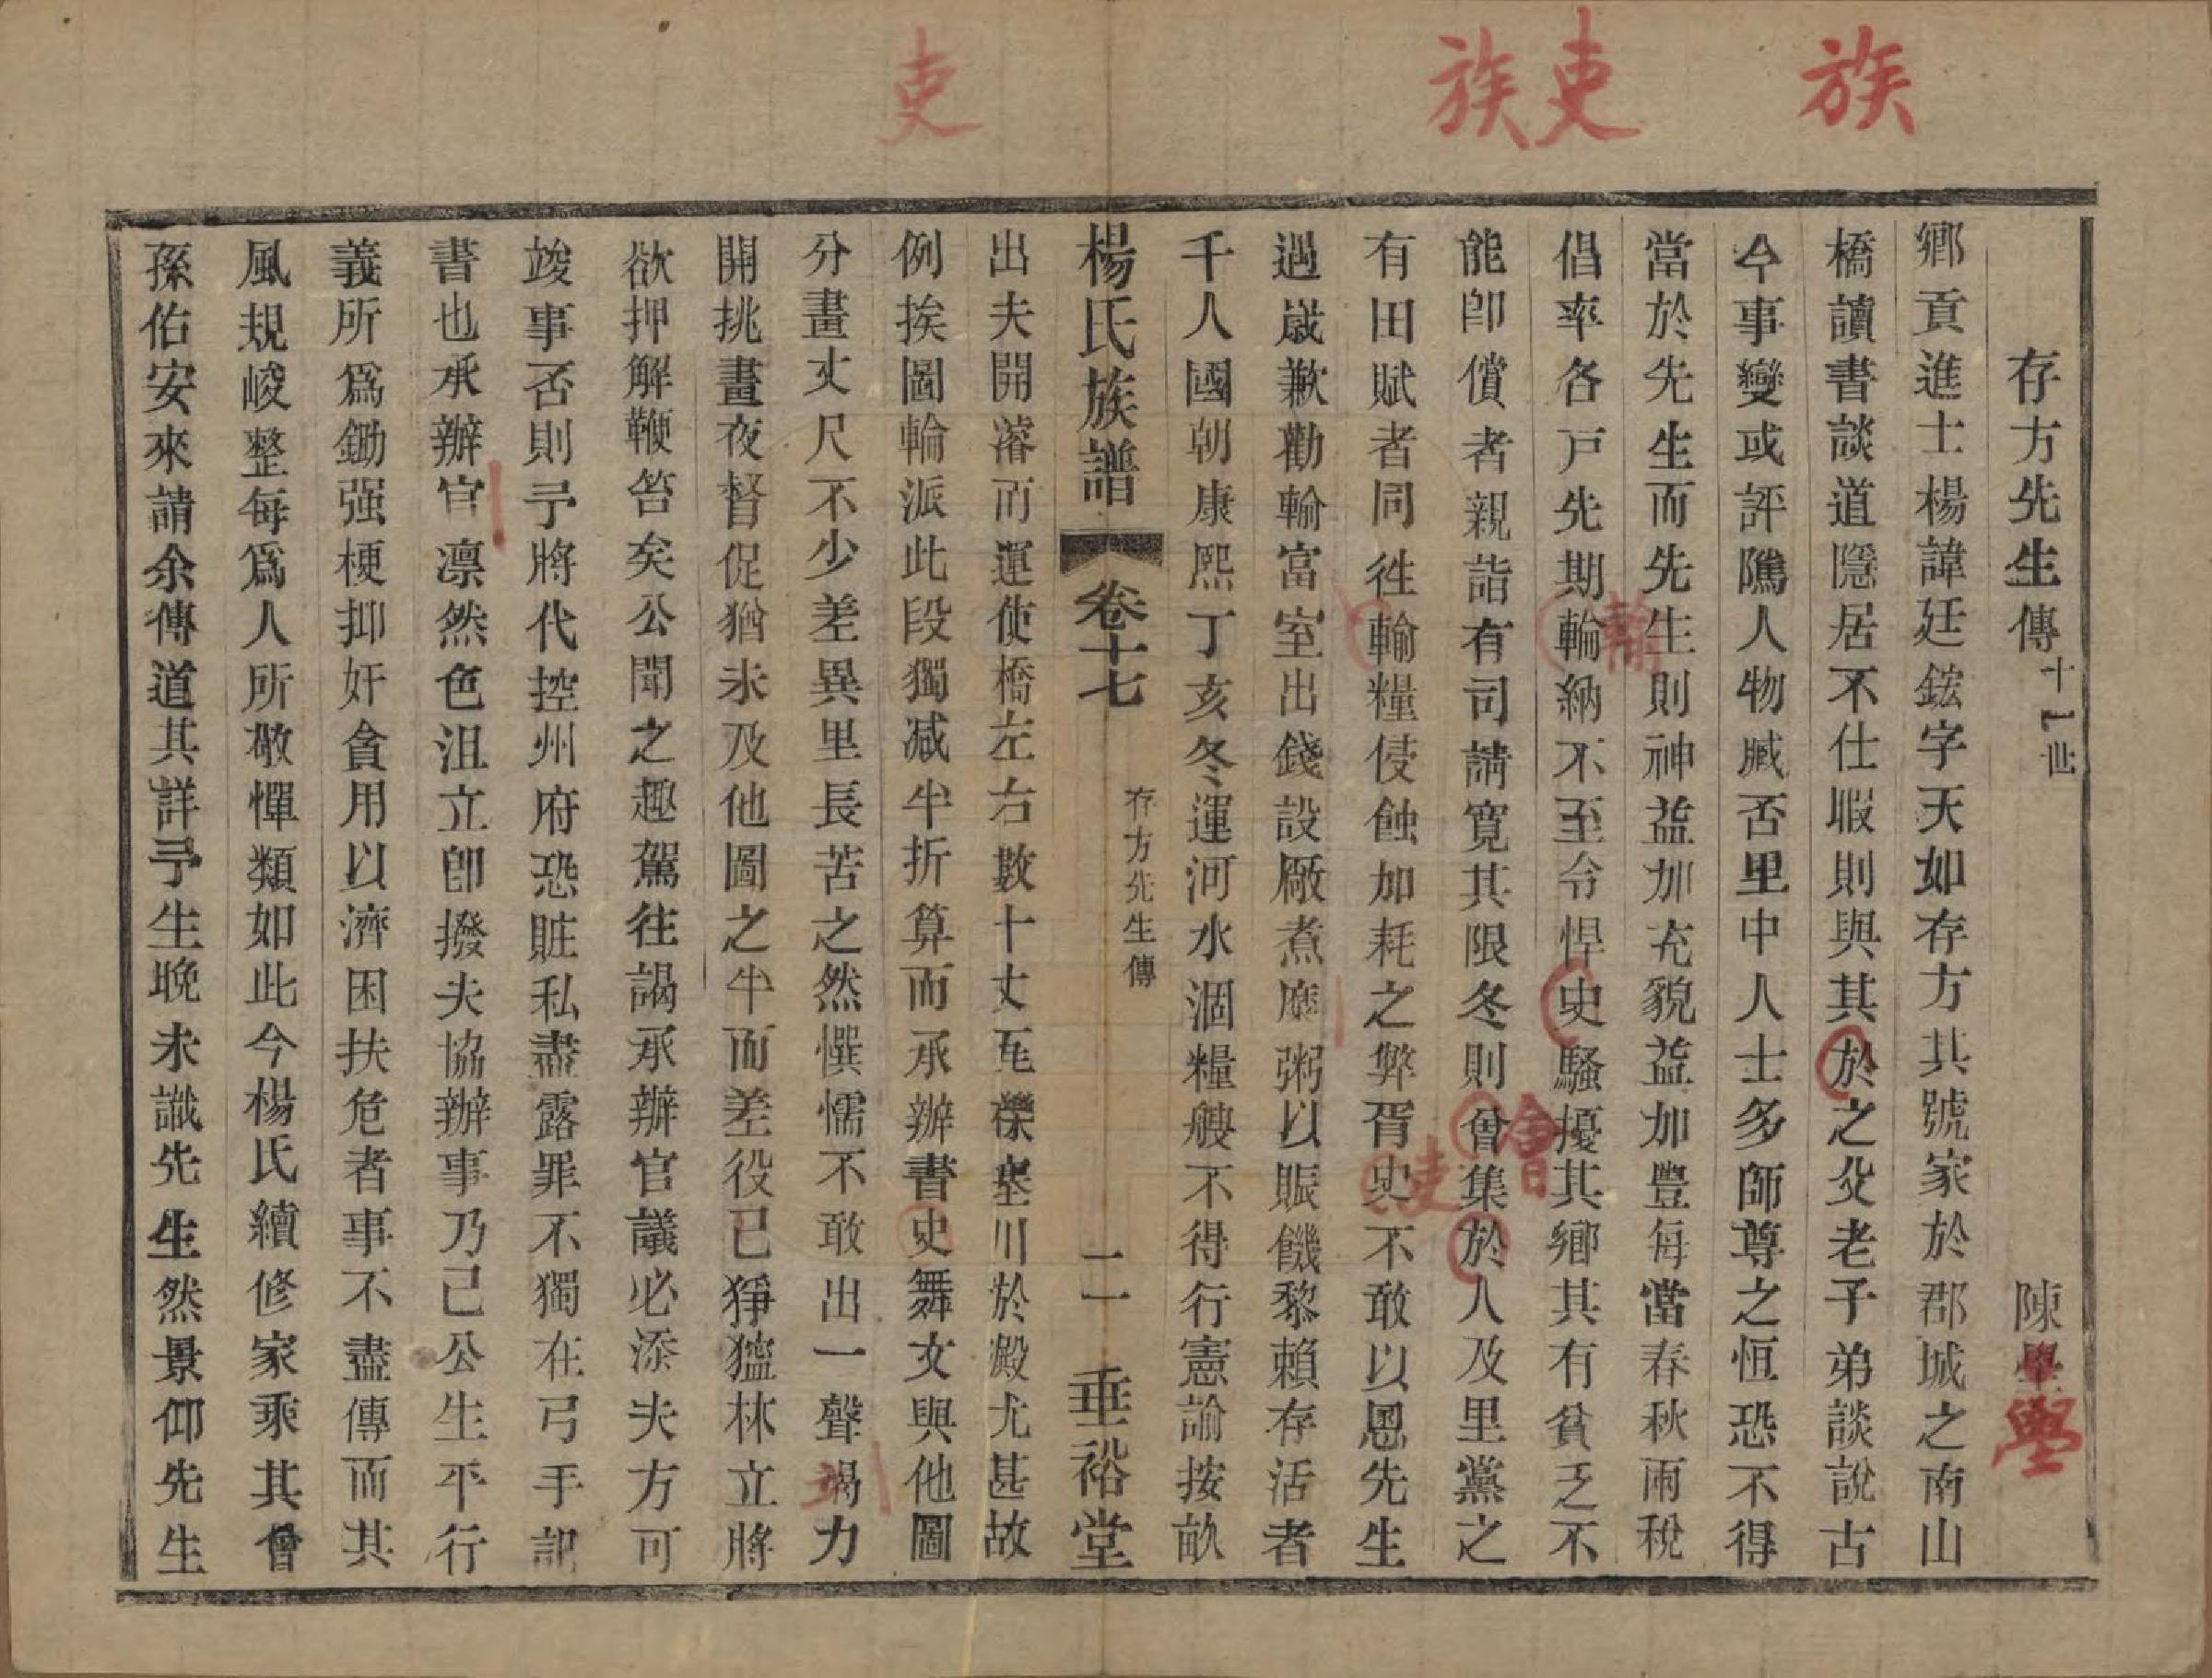 族
吏
族
吏
存方先生傳十一世 陳壆學
鄉貢進士楊諱廷鋐字天如存方其號家於郡城之南山
橋讀書談道隱居不仕暇則與其於之父老子弟談說古
今事變或評隲人物臧否里中人士多師尊之恒恐不得
當於先生而先生則神益加充貌益加豐每當春秋兩稅
倡率各戶先期輪納不至令悍史騷擾其鄉其有貧乏不
輸
能卽償者親詣有司請寬其限冬則曾集於人及里黨之
會
有田賦者同徃輸糧侵蝕加耗之弊胥史不敢以愚先生
吏
過歲歉勸輸富室出錢設厰煮糜粥以賑饑黎賴存活者
千人國朝康熙丁亥冬運河水涸糧艘不得行憲諭按畝
楊氏族譜 卷十七 存方先生傳 二一 垂裕堂
出夫開濬而運使橋左右數十丈瓦礫壘川於澱尤甚故
例挨圖輪派此段獨减半折算而承辦書史舞文與他圖
分畫丈尺不少差異里長苦之然懦懦不敢出一聲竭力
開挑晝夜督促猶未及他圖之半而差役已猙獰林立將
欲押解鞭笞矣公聞之趣駕往謁承辦官議必添夫方可
竣事否則予將代控州府恐賍私盡露罪不獨在弓手記
書也承辦官凛然色沮立卽撥夫協辦事乃已公生平行
義所爲鋤强梗抑奸貪用以濟困扶危者事不盡傳而其
風規峻整每爲人所敬憚類如此今楊氏續修家乘其曾
孫佑安來請余傳道其詳予生晚未識先生然景仰先生